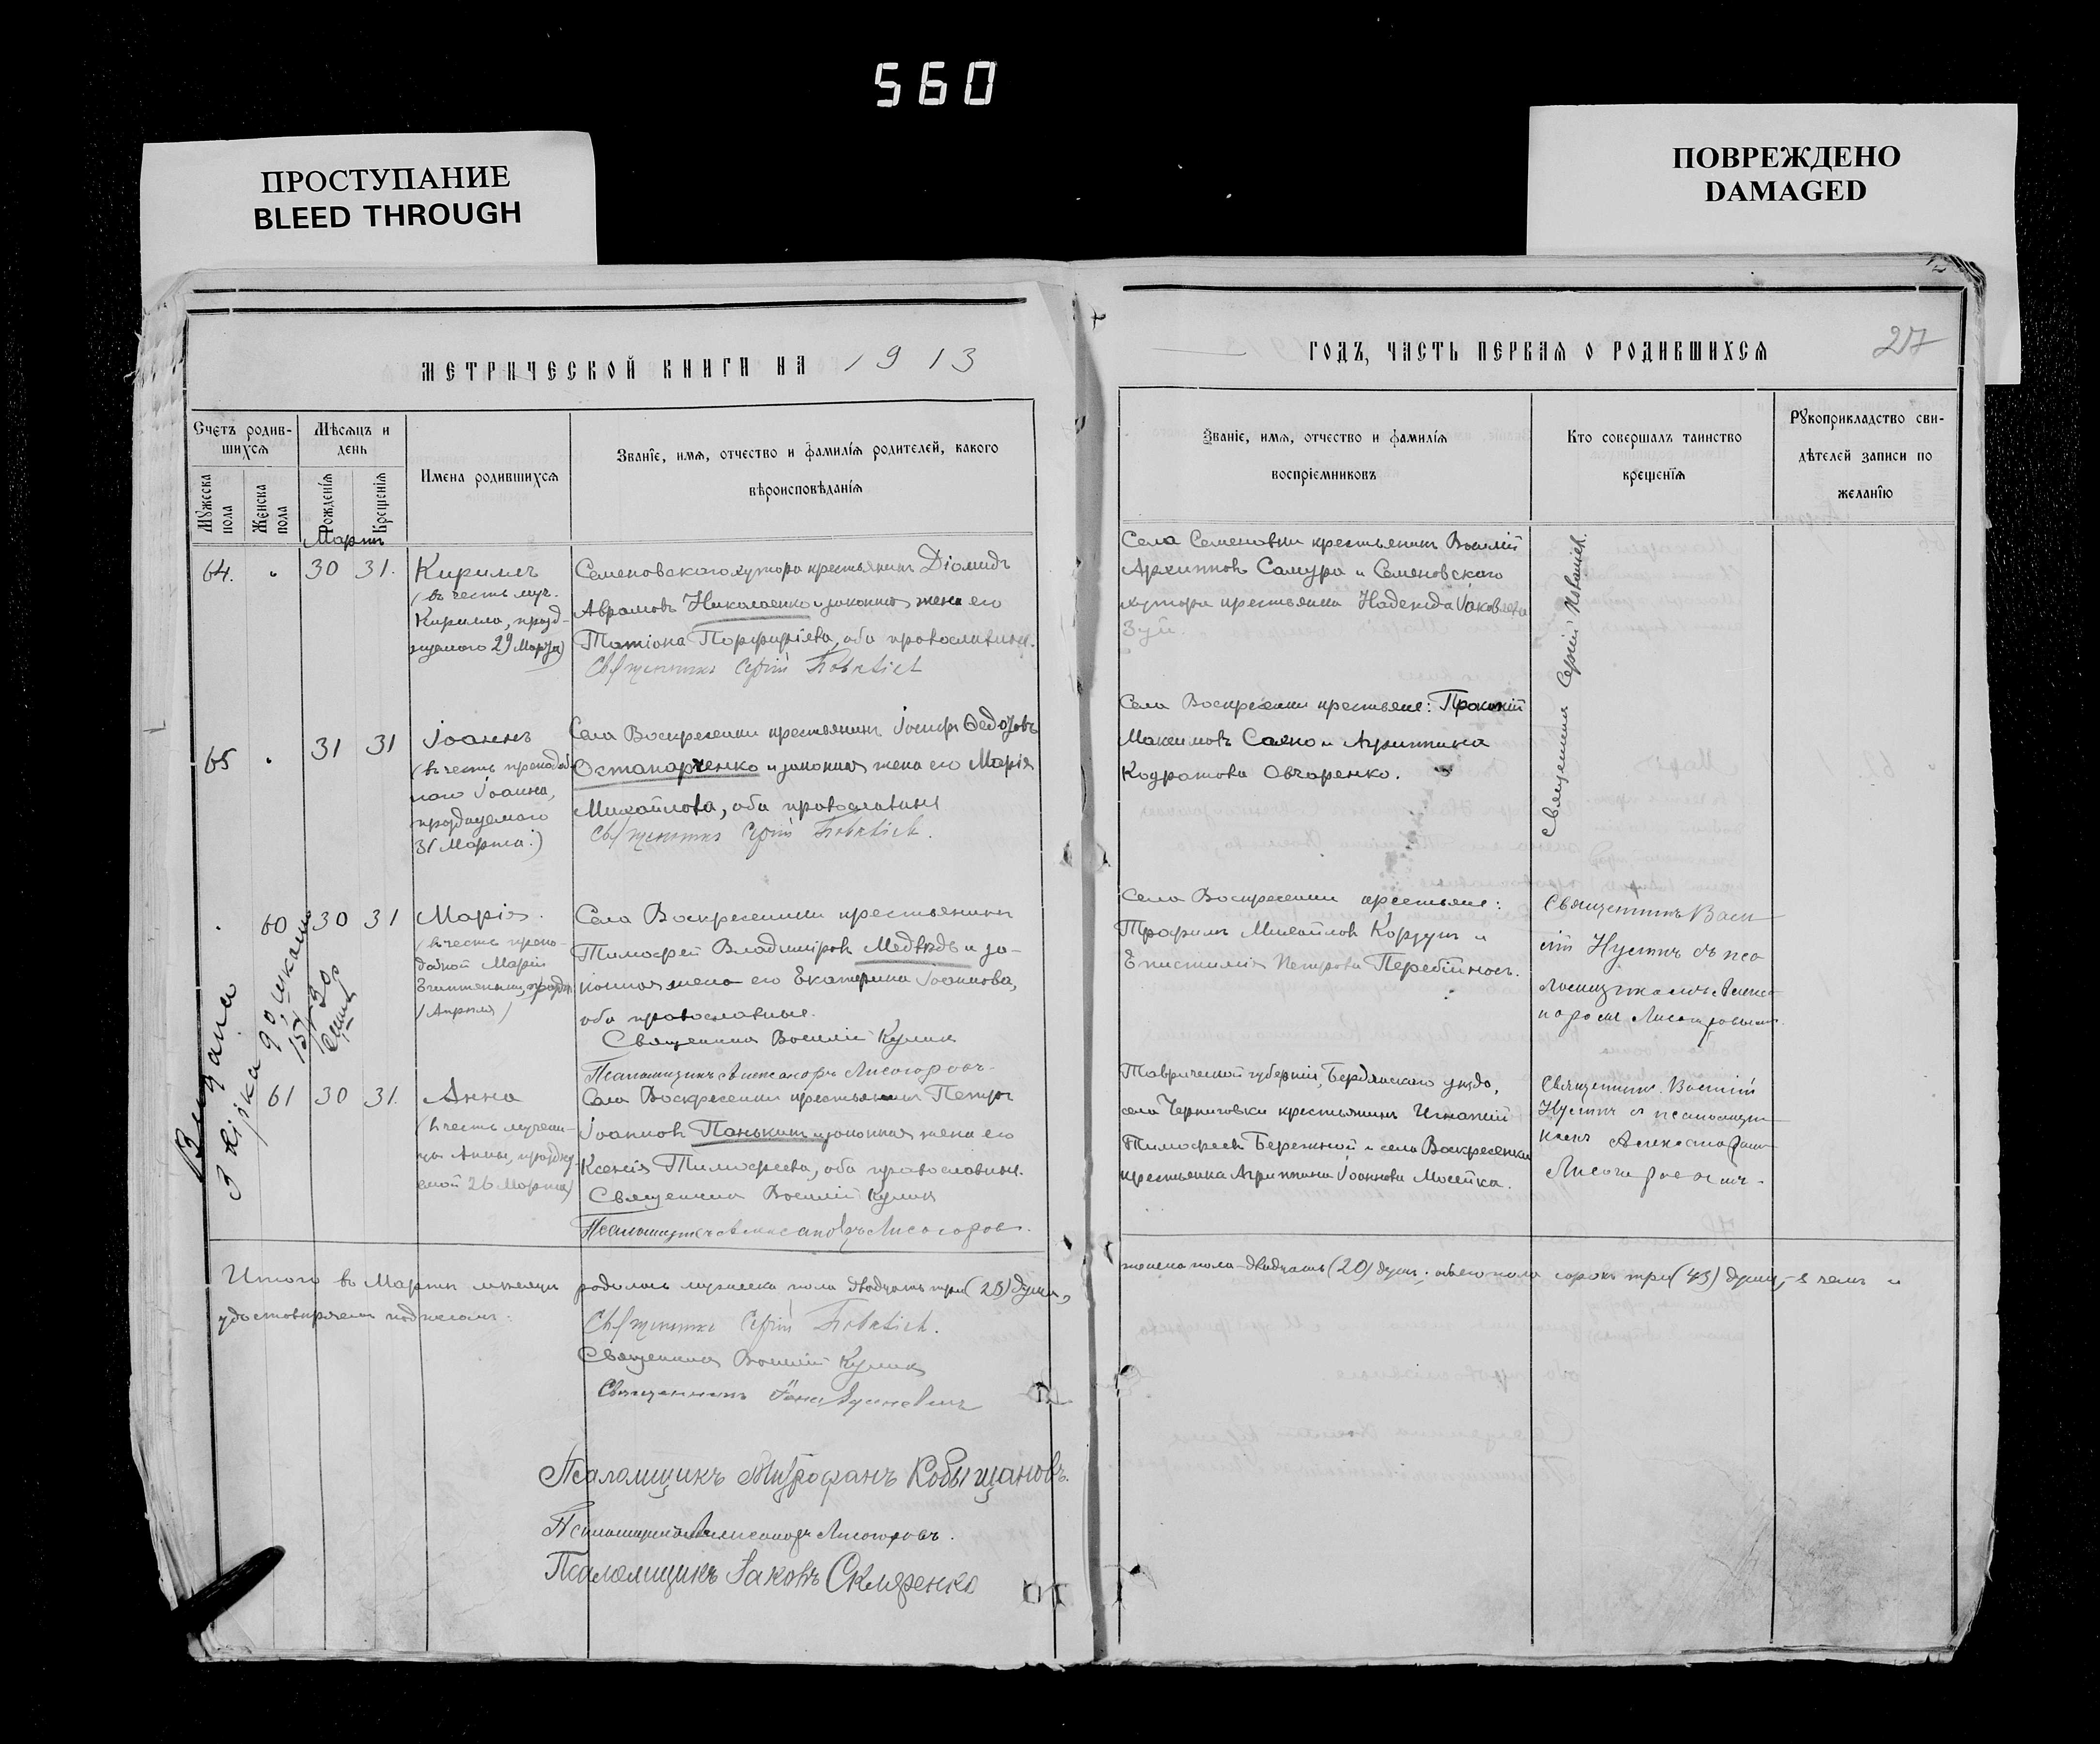 560
ПРОСТУПАНИЕ
BLEED THROUGH
ПОВРЕЖДЕНО
DAMAGED
МЕТРИЧЕСКОЙ КНИГИ НА 1913
Счетъ родив-
шихся
Мужеска
пола
Женска
пола
Мѣсяцъ и
день
Рожденія
Крещенія
Имена родившихся
Званіе, имя, отчество и фамилія родителей, какого
вѣроисповѣданія
Мартъ
64.
30
31.
Кириллъ
(въ честь муч.
Кирилла, празд-
нуемого 29 Марта)
Семеновского хутора крестьянинъ Діомидъ
Аврамовъ Николаенко и законная жена его
Татіана Порфиріева, оба православные.
Священникъ Сергій
65
31
31
Іоаннъ
(въ честь преподоб-
ного Іоанна,
празднуемого
31 Марта.)
Села Воскресенки крестьянинъ Іосифъ Ѳедоровъ
Остапарченко и законная жена его Марія
Михайлова, оба православные
Священникъ Сергій
60
30
31
Марія.
(въ честь препо-
добной Маріи
Египетской, праздн.
1 Апрѣля)
Села Воскресенки крестьянинъ
Тимоѳей Владиміровъ Медвѣдь и за-
конная жена его Екатерина Іоаннова,
оба православные.
Священникъ Василій Куликъ
Псаломщикъ Александръ Лисогоровъ
61
30
31.
Анна
(въ честь мучени-
цы Анны, праздну-
емой 26 Марта)
Села Воскресенки крестьянинъ Петръ
Іоанновъ Панькинъ и законная жена его
Ксенія Тимоѳеева, оба православные.
Священникъ Василій Куликъ
Псаломщикъ Александръ Лисогоровъ.
Видано
Итого въ Мартѣ мѣсяцѣ родилось мужеска пола двадцать три (23) души,
удостовѣряемъ подписомъ:
Священникъ Сергій
Священникъ Василій Куликъ
Священникъ
Псаломщикъ Митрофанъ Кобыщановъ.
Псаломщикъ Александръ Лисогоровъ.
Псаломщикъ Іаковъ Скляренко
ГОДЪ, ЧАСТЬ ПЕРВАЯ О РОДИВШИХСЯ
27
Званіе, имя, отчество и фамилія
воспріемниковъ
Кто совершалъ таинство
крещенія
Рукоприкладство сви-
дѣтелей записи по
желанію
Села Семеновки крестьянинъ Василій
Архиповъ Самура и Семеновского
хутора крестьянка Надежда Іаковлева
Зуй.
Священникъ Сергій
Села Воскресенки крестьяне: Прокопій
Максимовъ Саенко и Агриппина
Кодратова Овчаренко.
Села Воскресенки крестьяне:
Трофимъ Михайловъ Коржукъ и
Епистимія Петрова Перебійносъ.
Священникъ Васи-
лій Куликъ съ пса-
ломщикомъ Алекса-
ндромъ Лисогоровымъ
Таврической губерніи, Бердянского уѣзда,
села Черниговки крестьянинъ Игнатій
Тимоѳеевъ Бережной и села Воскресенки
крестьянка Агриппина Іоаннова Мосейка.
Священникъ Василій
Куликъ съ псаломщи-
комъ Александромъ
Лисогоровымъ.
женска пола двадцать (20) душъ; обоего пола сорокъ три (43) души, въ чемъ и